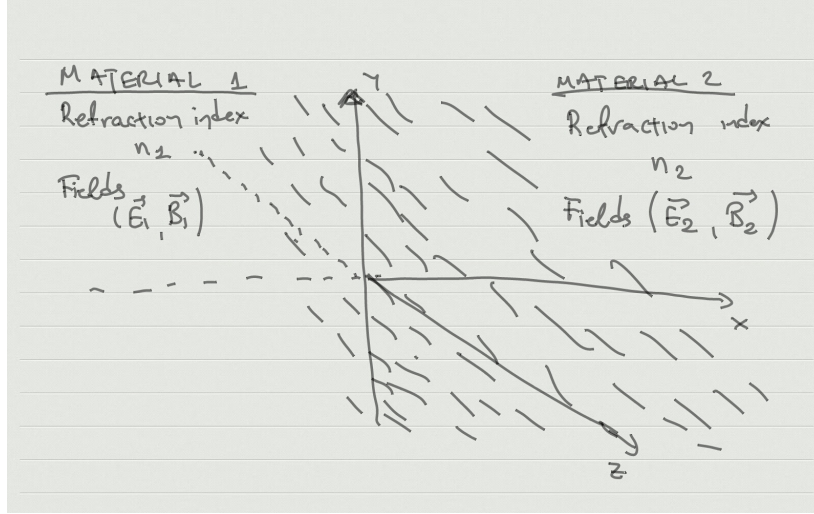 MATERIAL 1
Refraction index
n1
Fields
(E⃗1, B⃗1)
Y
MATERIAL 2
Refraction index
n2
Fields (E⃗2, B⃗2)
X
Z